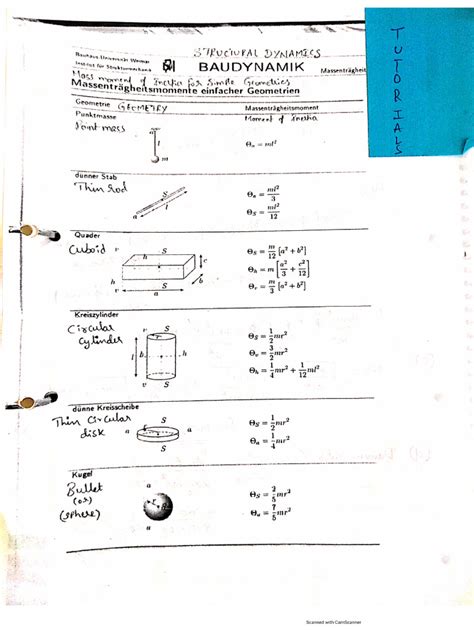 Bauhaus Universität Weimar
Institut für Strukturmechanik
STRUCTURAL DYNAMICS
BAUDYNAMIK
Massenträgheit
TUTORIALS
Mass moment of Inertia for Simple Geometries
Massenträgheitsmomente einfacher Geometrien
Geometrie GEOMETRY Massenträgheitsmoment
Punktmasse Moment of Inertia
Point mass
l
m
Θₐ = ml²
dünner Stab
Thin rod
S
l
a
Θₐ = ml²/3
Θ_S = ml²/12
Quader
Cuboid
v S
h
c
h
b
v a S
Θ_S = m/12 [a² + b²]
Θ_h = m [a²/3 + c²/12]
Θ_v = m/3 [a² + b²]
Kreiszylinder
Circular
Cylinder
v S
l b h
v S
Θ_S = 1/2 mr²
Θ_v = 3/2 mr²
Θ_h = 1/4 mr² + 1/12 ml²
dünne Kreisscheibe
Thin Circular
disk
S
a a
S
Θ_S = 1/2 mr²
Θₐ = 1/4 mr²
Kugel
Bullet
(or)
(sphere)
a
r
a
Θ_S = 2/5 mr²
Θₐ = 7/5 mr²
Scanned with CamScanner